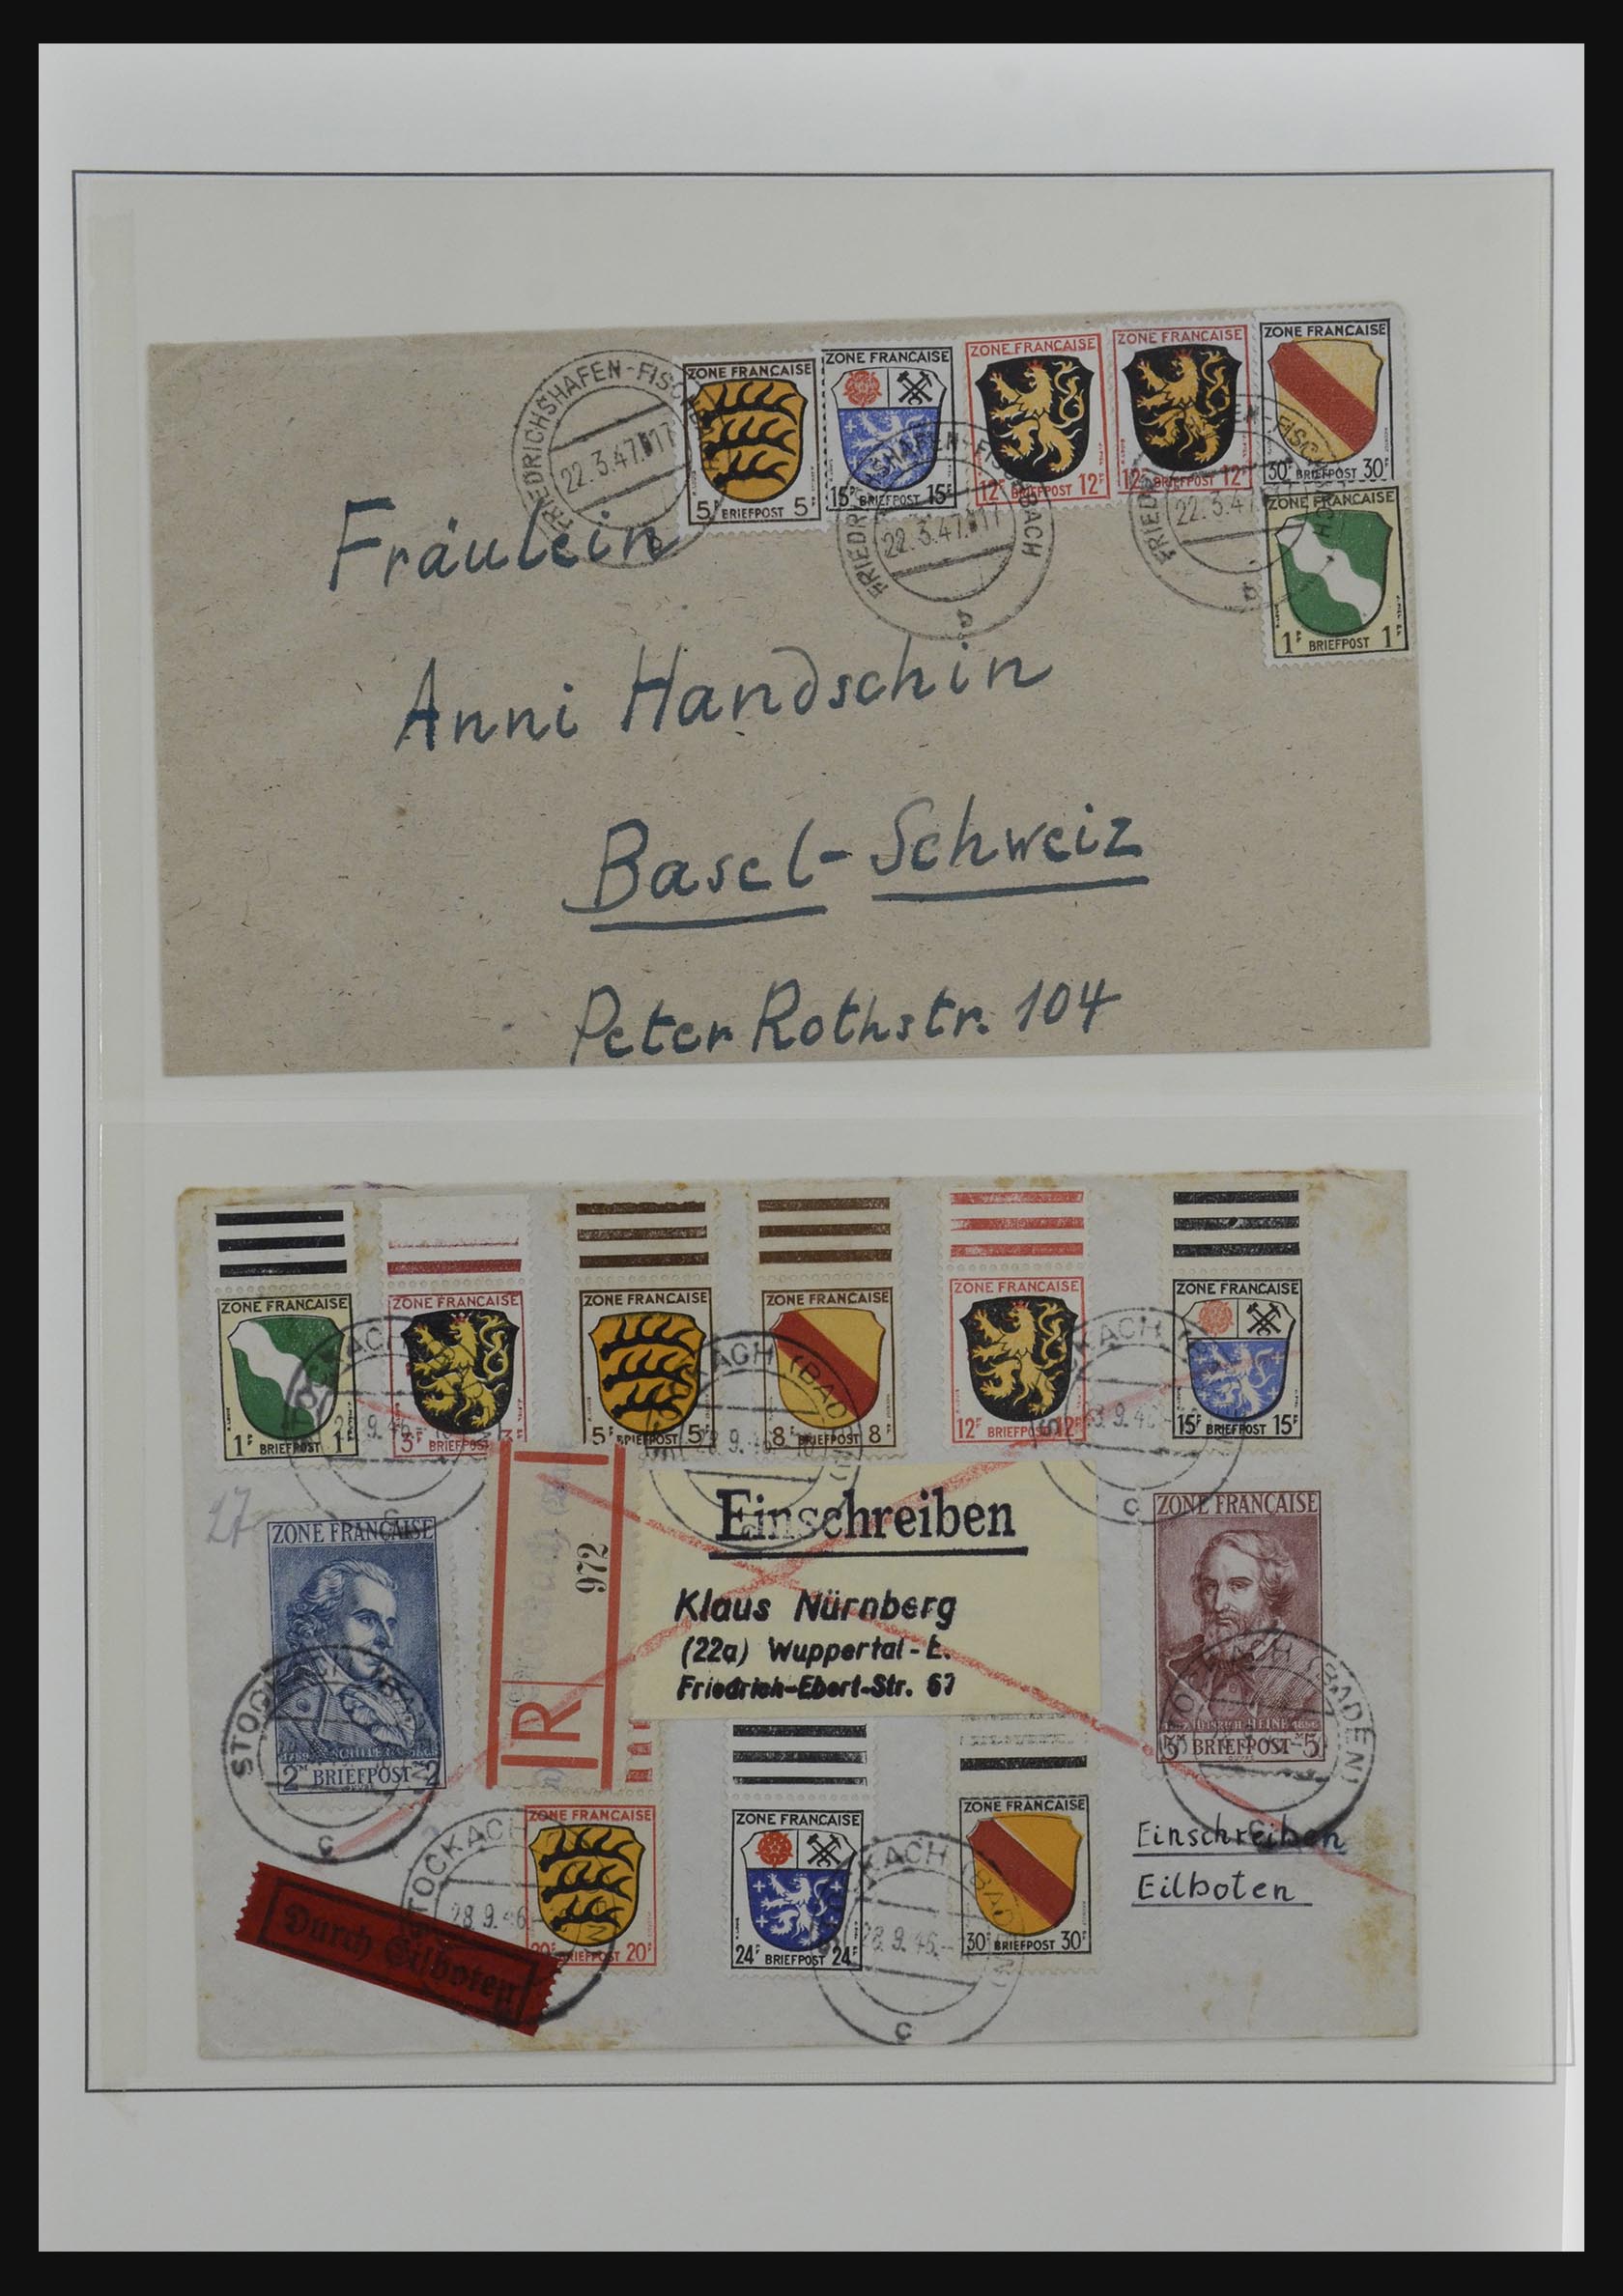 FRIEDRICHSHAFEN-FISCHBACH
22.3.47.
ZONE FRANÇAISE
5F BRIEFPOST 5F
ZONE FRANÇAISE
15F BRIEFPOST 15F
ZONE FRANÇAISE
12F BRIEFPOST 12F
ZONE FRANÇAISE
12F BRIEFPOST 12F
ZONE FRANÇAISE
30F BRIEFPOST 30F
22.3.47.
22.3.47
ZONE FRANÇAISE
1F BRIEFPOST 1F
Fräulein
Anni Handschin
Basel-Schweiz
Peter Rothstr. 104
ZONE FRANÇAISE
1F BRIEFPOST 1F
ZONE FRANÇAISE
3F BRIEFPOST 3F
ZONE FRANÇAISE
5F BRIEFPOST 5F
ZONE FRANÇAISE
8F BRIEFPOST 8F
ZONE FRANÇAISE
12F BRIEFPOST 12F
ZONE FRANÇAISE
15F BRIEFPOST 15F
27
ZONE FRANÇAISE
SCHILLER
2M BRIEFPOST M2
R
972
Einschreiben
Klaus Nürnberg
(22a) Wuppertal-E.
Friedrich-Ebert-Str. 67
ZONE FRANÇAISE
HEINRICH HEINE 1856
5M BRIEFPOST M5
STOCKACH (BADEN)
c
Einschreiben
Eilboten
Durch Eilboten
STOCKACH
28.9.46.
ZONE FRANÇAISE
20F BRIEFPOST 20F
ZONE FRANÇAISE
24F BRIEFPOST 24F
28.9.46.-
c
ZONE FRANÇAISE
30F BRIEFPOST 30F